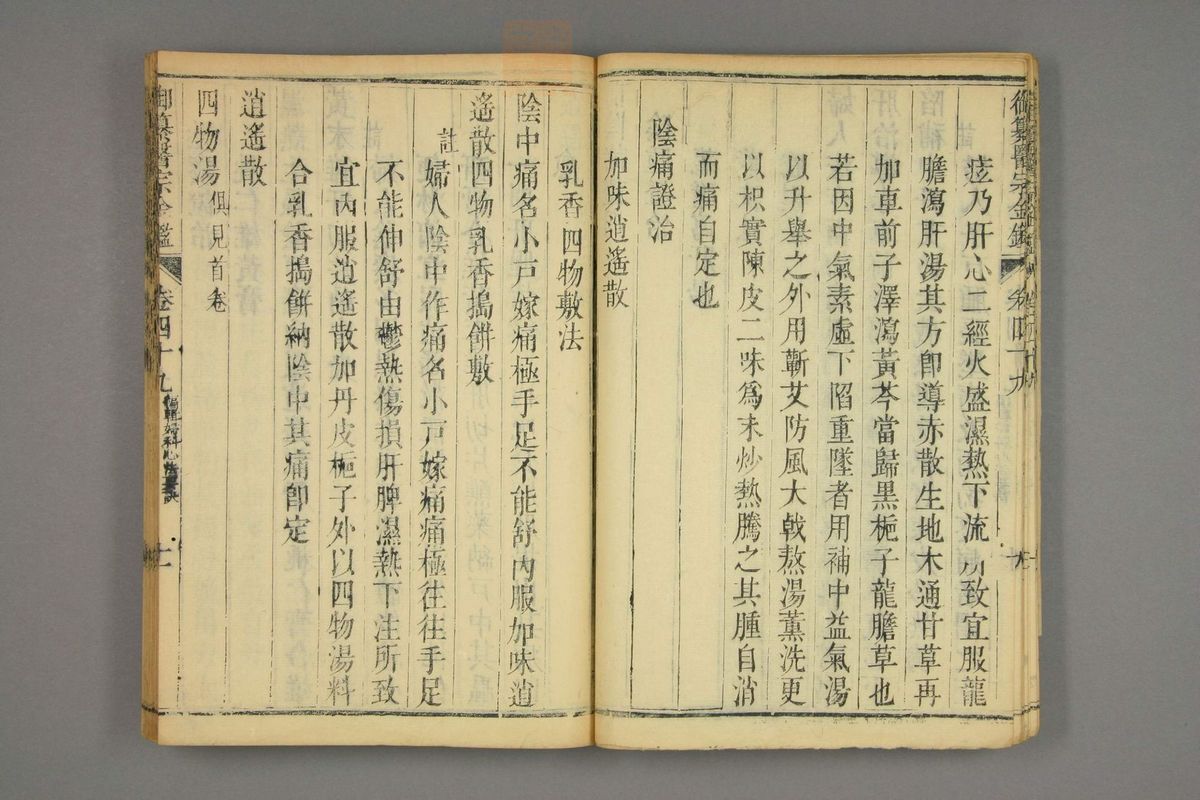 御纂醫宗金鑑
卷四十九
痃乃肝心二經火盛濕熱下流所致宜服龍
膽瀉肝湯其方卽導赤散生地木通甘草再
加車前子澤瀉黃芩當歸黑梔子龍膽草也
若因中氣素虛下陷重墜者用補中益氣湯
以升舉之外用蘄艾防風大戟熬湯薰洗更
以枳實陳皮二味爲末炒熱騰之其腫自消
而痛自定也
陰痛證治
加味逍遙散
乳香四物敷法
陰中痛名小戶嫁痛極手足不能舒內服加味逍
遙散四物乳香搗餅敷
註 婦人陰中作痛名小戶嫁痛痛極往往手足
不能伸舒由鬱熱傷損肝脾濕熱下注所致
宜內服逍遙散加丹皮梔子外以四物湯料
合乳香搗餅納陰中其痛卽定
逍遙散
四物湯俱見首卷
御纂醫宗金鑑
卷四十九
編輯婦科心法要訣